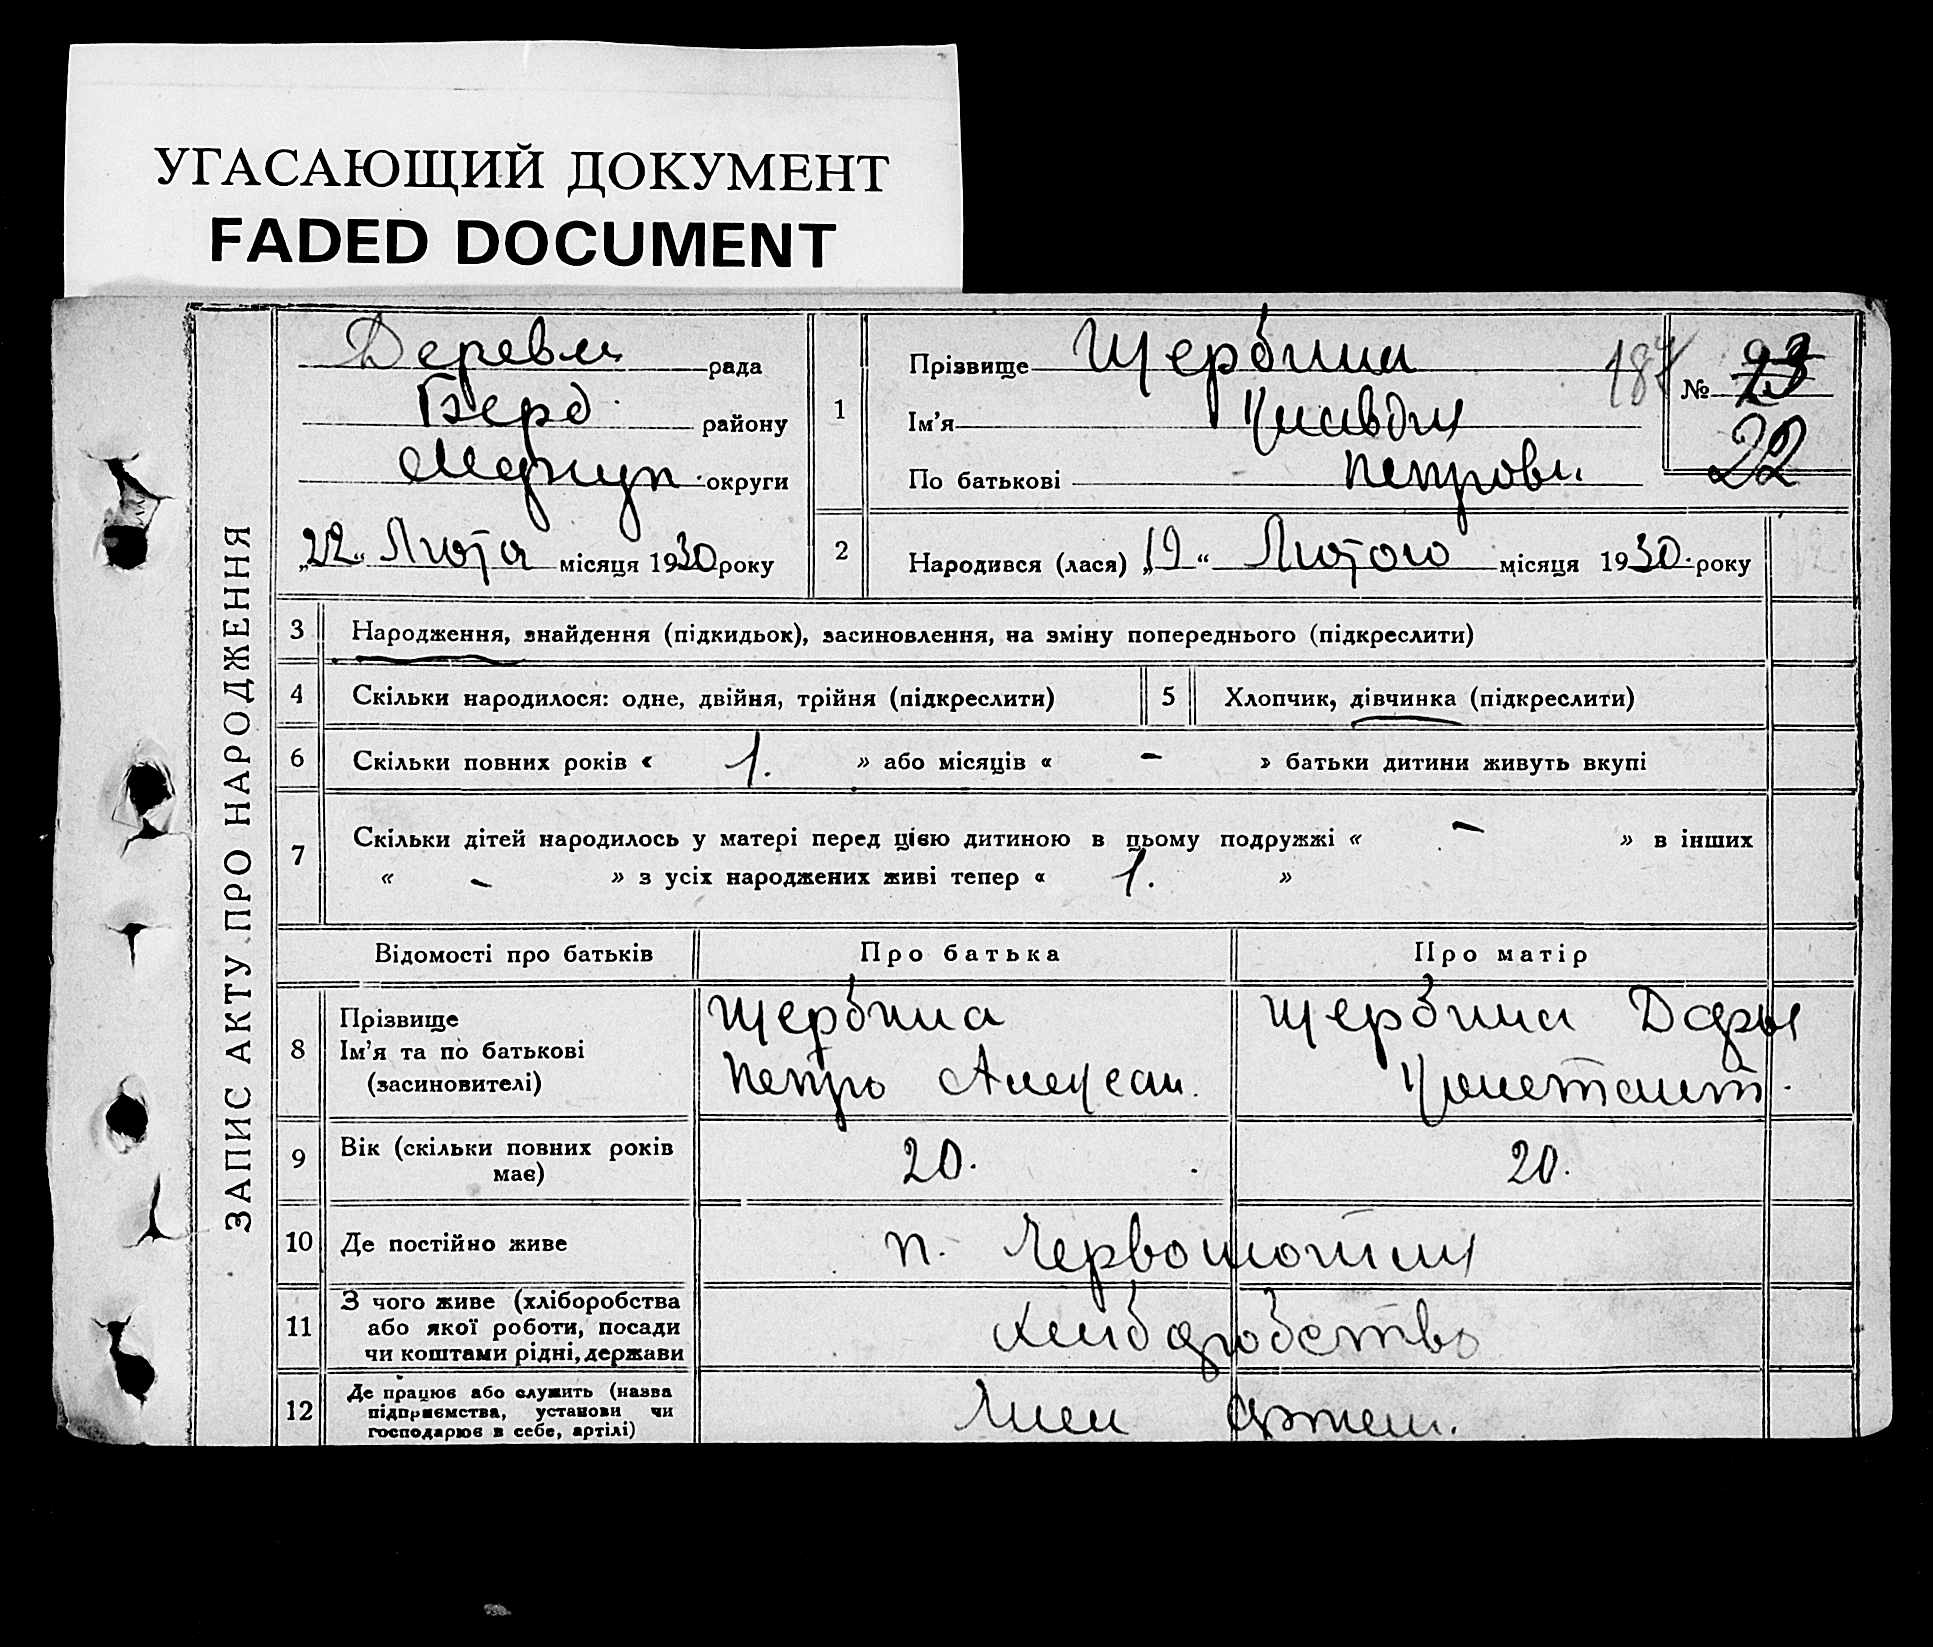 УГАСАЮЩИЙ ДОКУМЕНТ
FADED DOCUMENT
ЗАПИС АКТУ ПРО НАРОДЖЕННЯ
рада
Берд. району
округи
„22“ Люта місяця 1930 року
1
Прізвище Щербина
Ім’я Клавдія
По батькові Петровн.
187
№ 23
22
2
Народився (лася) „19“ Лютого місяця 1930. року
3 Народження, знайдення (підкидьок), засиновлення, на зміну попереднього (підкреслити)
4 Скільки народилося: одне, двійня, трійня (підкреслити)
5 Хлопчик, дівчинка (підкреслити)
6 Скільки повних років « 1. » або місяців « - » батьки дитини живуть вкупі
7 Скільки дітей народилось у матері перед цією дитиною в цьому подружжі « - » в інших
« - » з усіх народжених живі тепер « 1. »
Відомості про батьків Про батька Про матір
8 Прізвище
Ім’я та по батькові
(засиновителі)
Щербина
Петро Алексан.
Щербина Дарья
Константт.
9 Вік (скільки повних років
має)
20. 20.
10 Де постійно живе
п.
11 З чого живе (хліборобства
або якої роботи, посади
чи коштами рідні, держави
Хлібаробство
12 Де працює або служить (назва
підприємства, установи чи
господарює в себе, артілі)